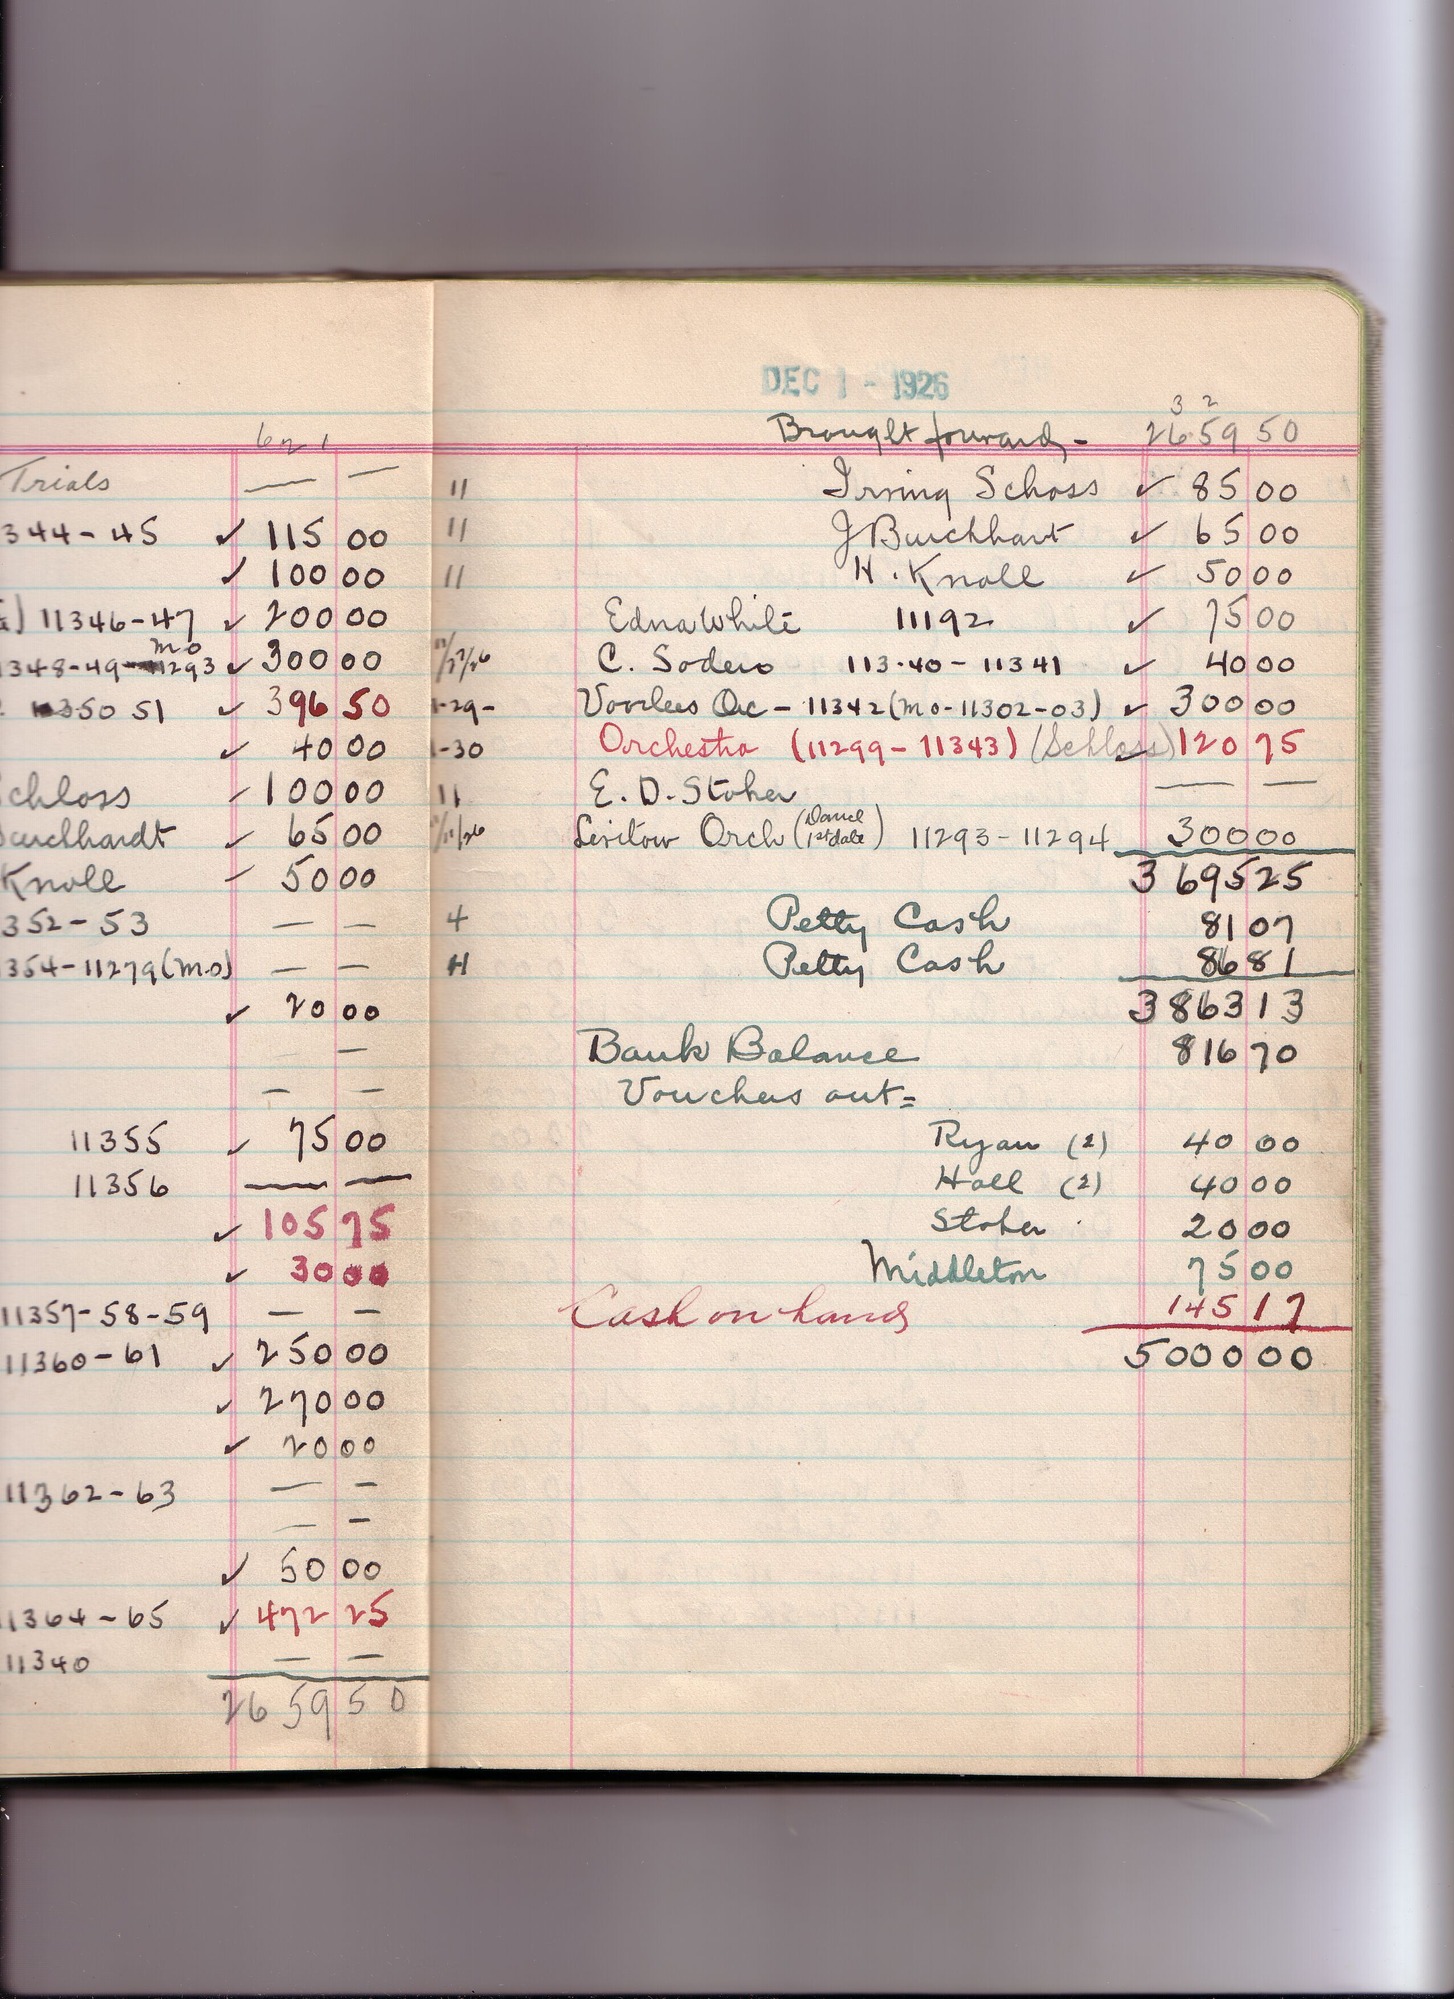 6 2 1
Trials — —
344-45 ✓ 115 00
✓ 100 00
) 11346-47 ✓ 200 00
mo
348-49- 11293 ✓ 300 00
350 51 ✓ 396 50
✓ 40 00
chloss ✓ 100 00
urchhardt ✓ 65 00
Knoll - 50 00
352-53 — —
354-11279(mo) — —
✓ 20 00
— —
— —
11355 ✓ 75 00
11356 — —
✓ 105 75
✓ 30 00
11357-58-59 — —
11360-61 ✓ 250 00
✓ 270 00
✓ 20 00
11362-63 — —
— —
✓ 50 00
11364-65 ✓ 472 25
11340 — —
2659 50
DEC 1 - 1926
3 2
Brought forward - 2659 50
" Irving Schoss ✓ 85 00
" J Burchhart ✓ 65 00
" H. Knoll ✓ 50 00
Edna White 11192 ✓ 75 00
11/27/26 C. Sodero 113.40-11341 ✓ 40 00
-29- Voorlees Orc - 11342 (mo-11302-03) ✓ 300 00
-30 Orchestra (11299-11343) (Schloss) ✓ 120 75
11 E. D. Stoker — —
/11/26 Levitow Orch (Dance 1st date) 11293-11294 300 00
3695 25
4 Petty Cash 81 07
H Petty Cash 86 81
3863 13
Bank Balance 816 70
Vouchers out=
Ryan (2) 40 00
Hall (2) 40 00
Stoker 20 00
Middleton 75 00
Cash on hand 145 17
5000 00